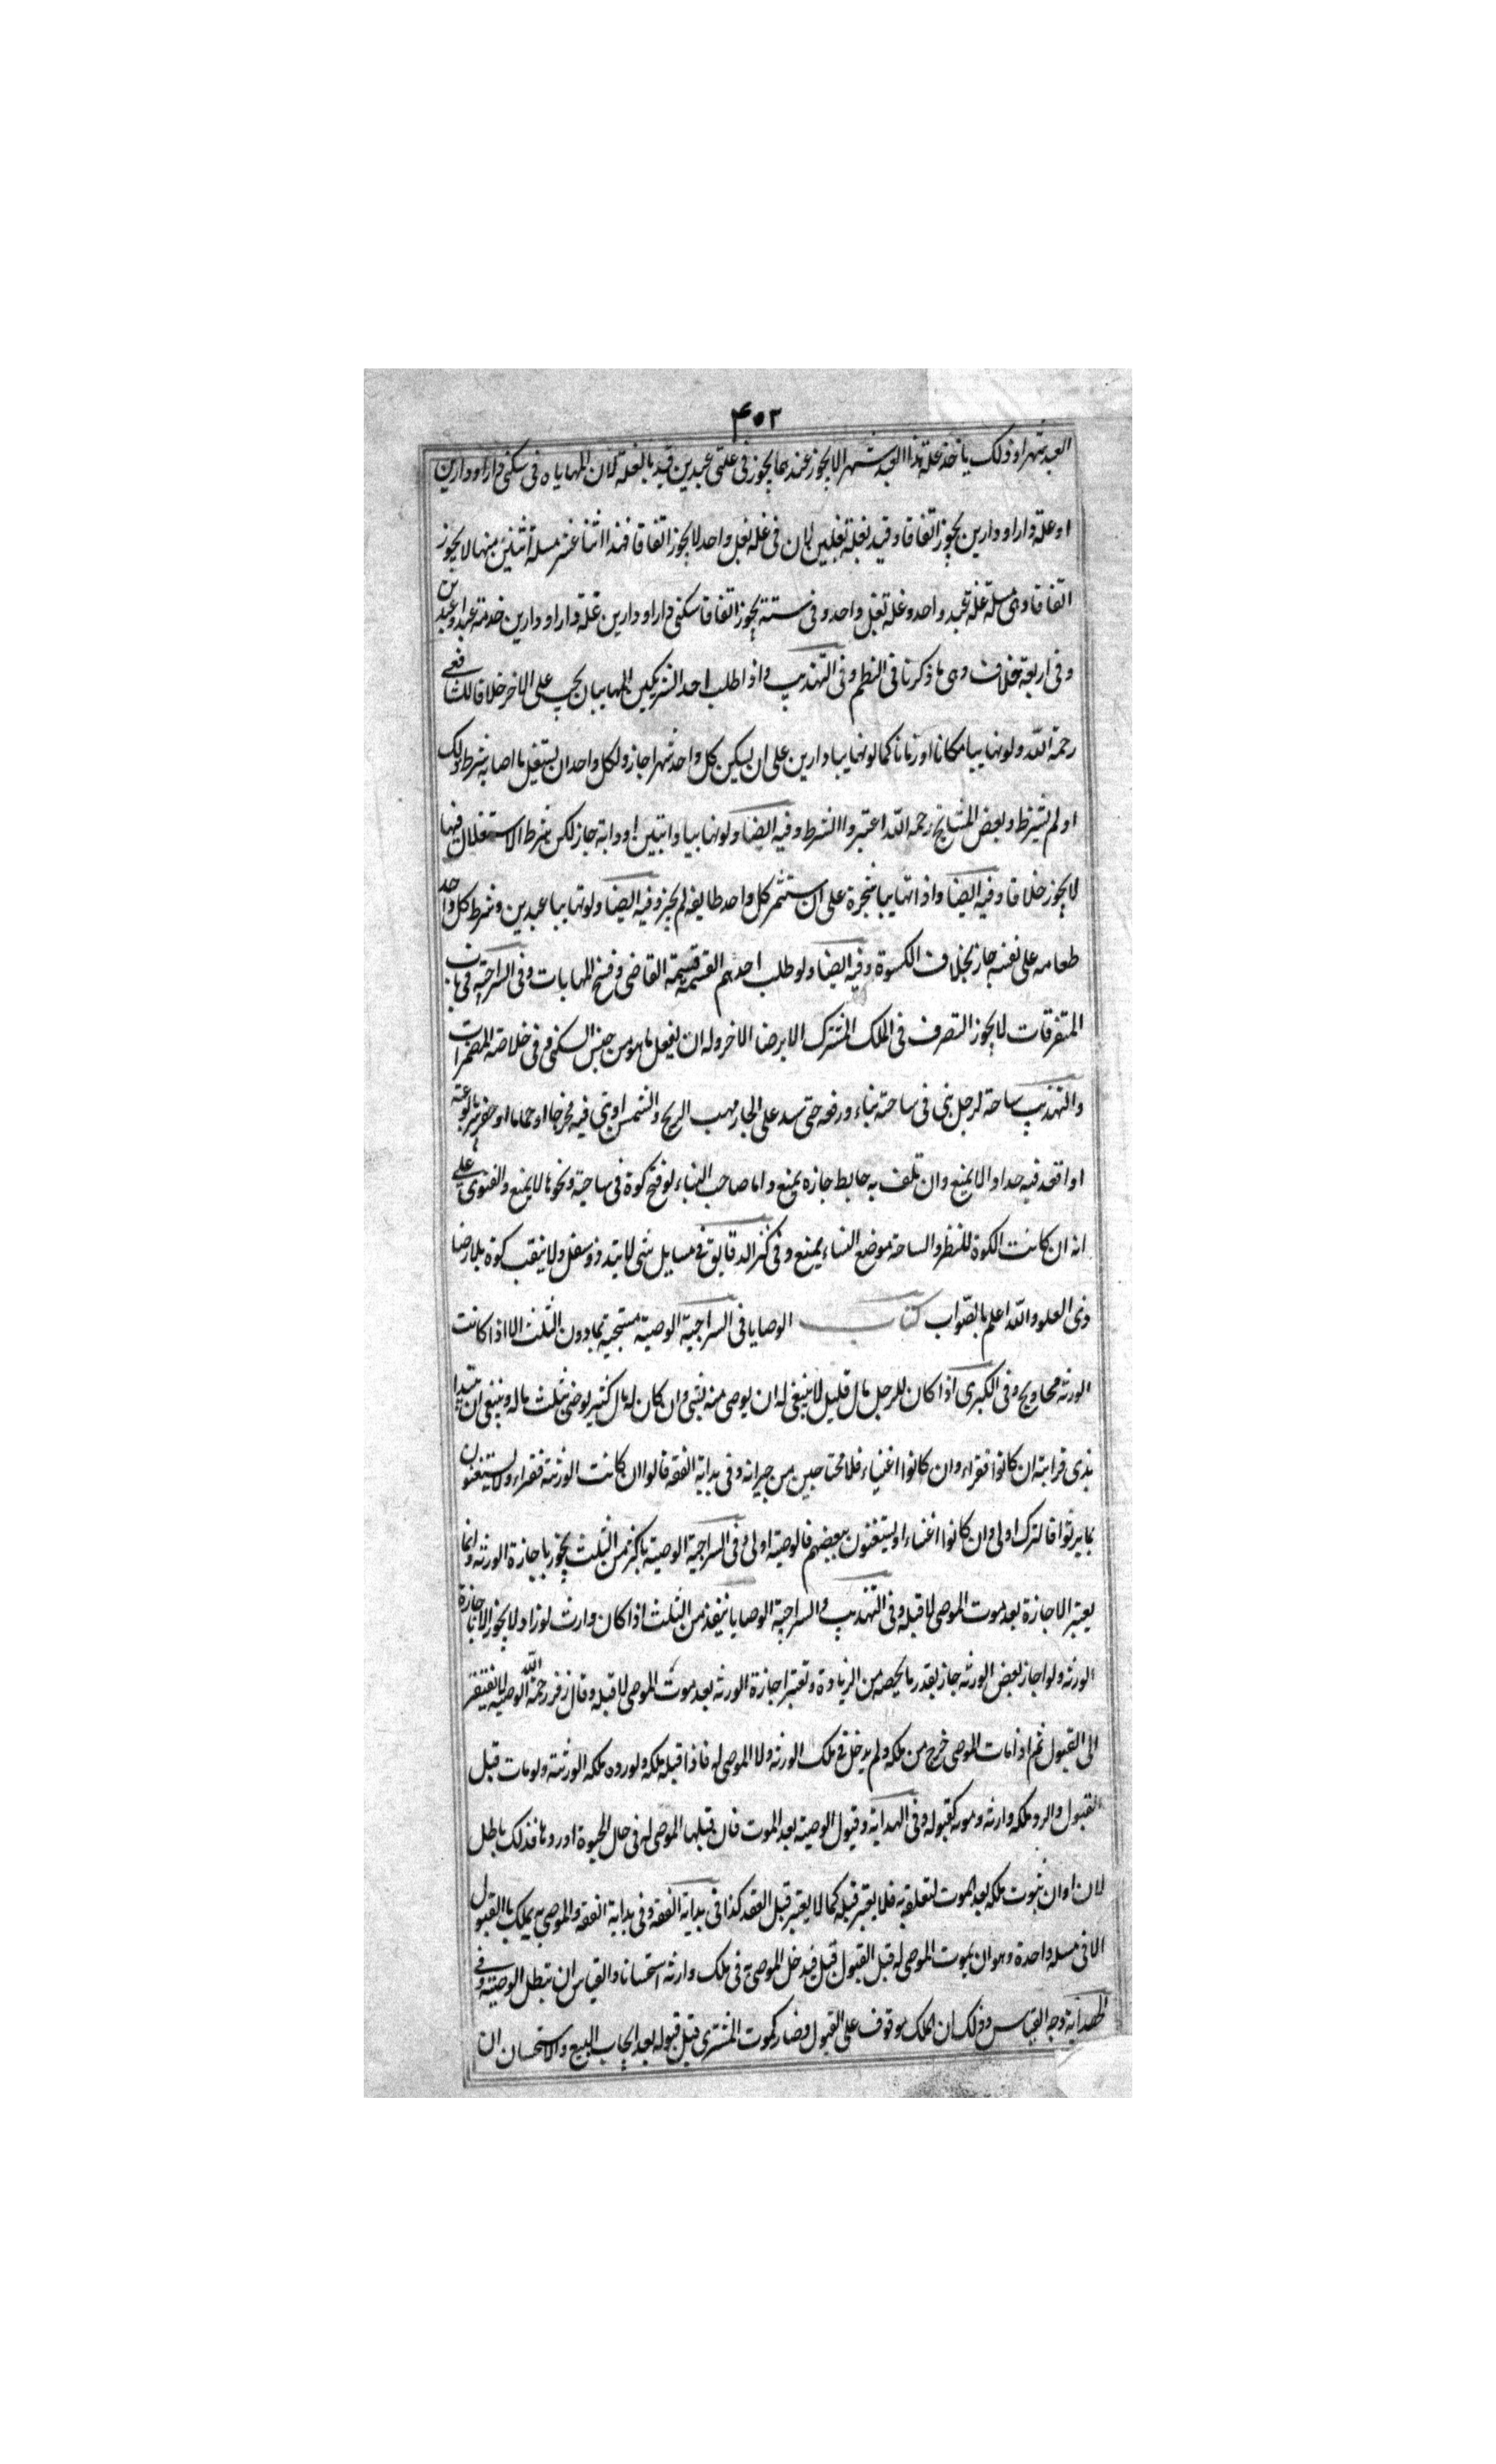 ۴۰۲
العبد شهرا وذلك ياخذ غلة هذا العبد شهرا لا يجوز عندهما يجوز في غلتي عبدين قيد بالغلة لان المهاياه في سكنى دار او دارين
او غلة دار او دارين يجوز اتفاقا وقيد بغلة بغلين لان في غلة بغل واحد لا يجوز اتفاقا فهذا اثنا عشر مسلة اثنتين منها لا يجوز
اتفاقا وهي مسلة غلة عبد واحد وغلة بغل واحد وفي ستة يجوز اتفاقا سكنى دار او دارين غلة دار او دارين خدمة عبد او عبدين
وفي اربعة خلاف وهي ما ذكرنا في النظم وفي التهذيب واذا طلب احد الشريكين المهايبان يجب على الاخر خلافا للشافعي
رحمة الله ولو تهايبا مكانا او زمانا كما لو تهايبا دارين على ان يسكن كل واحد شهرا جاز ولكل واحد ان يستغل ما اصابه شرط ذلك
او لم يشترط وبعض المشايخ رحمه الله اعتبروا الشرط وفيه ايضا ولو تهايبا دابتين او دابة جاز لكن بشرط الاستغلال فيها
لا يجوز خلافا وفيه ايضا واذا تهايبا شجرة على ان يستثمر كل واحد طايفة لم يجز وفيه ايضا ولو تهايبا عبدين وشرط كل واحد
طعامه على نفسه جاز بخلاف الكسوة وفيه ايضا ولو طلب احدهم القسمة قسمة القاضي وفسخ المهايات وفي السراجية في باب
المتفرقات لا يجوز التصرف في الملك المشترك الا برضا الاخر وله ان يفعل ما هو من جنس السكنى وفي خلاصة المضمرات
والتهذيب ساحة لرجل بنى في ساحته بناء ورفعه حتى سد على الجار مهب الريح والشمس او بنى فيه مخرجا او حماما او حفر بئر بالوعة
او اتخذ فيه حدادا لا يمنع وان تلف به حايط جازه يمنع واما صاحب البناء لو فتح كوة في ساحته ونحوها لا يمنع والفتوى على
انه ان كانت الكوة للنظر والساحة موضع النساء يمنع وفي كنز الدقايق في مسايل شتى لا يتد ذو سفل ولا ينقب كوة بلا رضا
ذي العلو والله اعلم بالصواب كتاب الوصايا في السراجية الوصية مستحبة بما دون الثلث الا اذا كانت
الورثة محاويج وفي الكبرى اذا كان للرجل مال قليل لا ينبغي له ان يوصي منه بشي وان كان له مال كثير يوصي بثلث ماله وينبغي ان يبتدا
بذي قرابته ان كانوا فقراء وان كانوا اغنياء فلا محتاجين من جيرانه وفي بداية الفقه قالوا ان كانت الورثة فقراء ولا يستغنون
بما يرثوا فالترك اولى وان كانوا اغنياء او يستغنون ببعضهم فالوصية اولى وفي السراجية الوصية باكثر من الثلث يجوز باجازة الورثة وانما
يعتبر الاجازة بعد موت الموصي لا قبله وفي التهذيب والسراجية الوصايا ينفذ من الثلث اذا كان وارث لو زاد لا يجوز الا باجازة
الورثة ولو اجاز بعض الورثه جاز بقدر ما يخصه من الزيادة وتعتبر اجازة الورثه بعد موت الموصي لا قبله وقال زفر رحمة الله الوصية لا تفتقر
الى القبول ثم اذا مات الموصي خرج من ملكه ولم يدخل في ملك الورثه ولا الموصى له فاذا قبله ملكه ولو رده ملكه الورثة ولو مات قبل
القبول والرد ملكه وارثه وموته كقبوله وفي الهداية وقبول الوصية بعد الموت فان قبلها الموصى له في حال الحيوة او ردها فذلك باطل
لان اوان ثبوت ملكه بعد الموت لتعلقه به فلا يعتبر قبله كما لا يعتبر قبل العقد كذا في بداية الفقه وفي بداية الفقه والموصى به يملك بالقبول
الا في مسلة واحدة وهو ان يموت الموصى له قبل القبول قبل فيدخل الموصى به في ملك وارثه استحسانا والقياس ان تبطل الوصية وفي
الهداية وجه القياس وذلك ان الملك موقوف على القبول فصار كموت المشتري قبل قبوله بعد ايجاب البيع والاستحسان ان